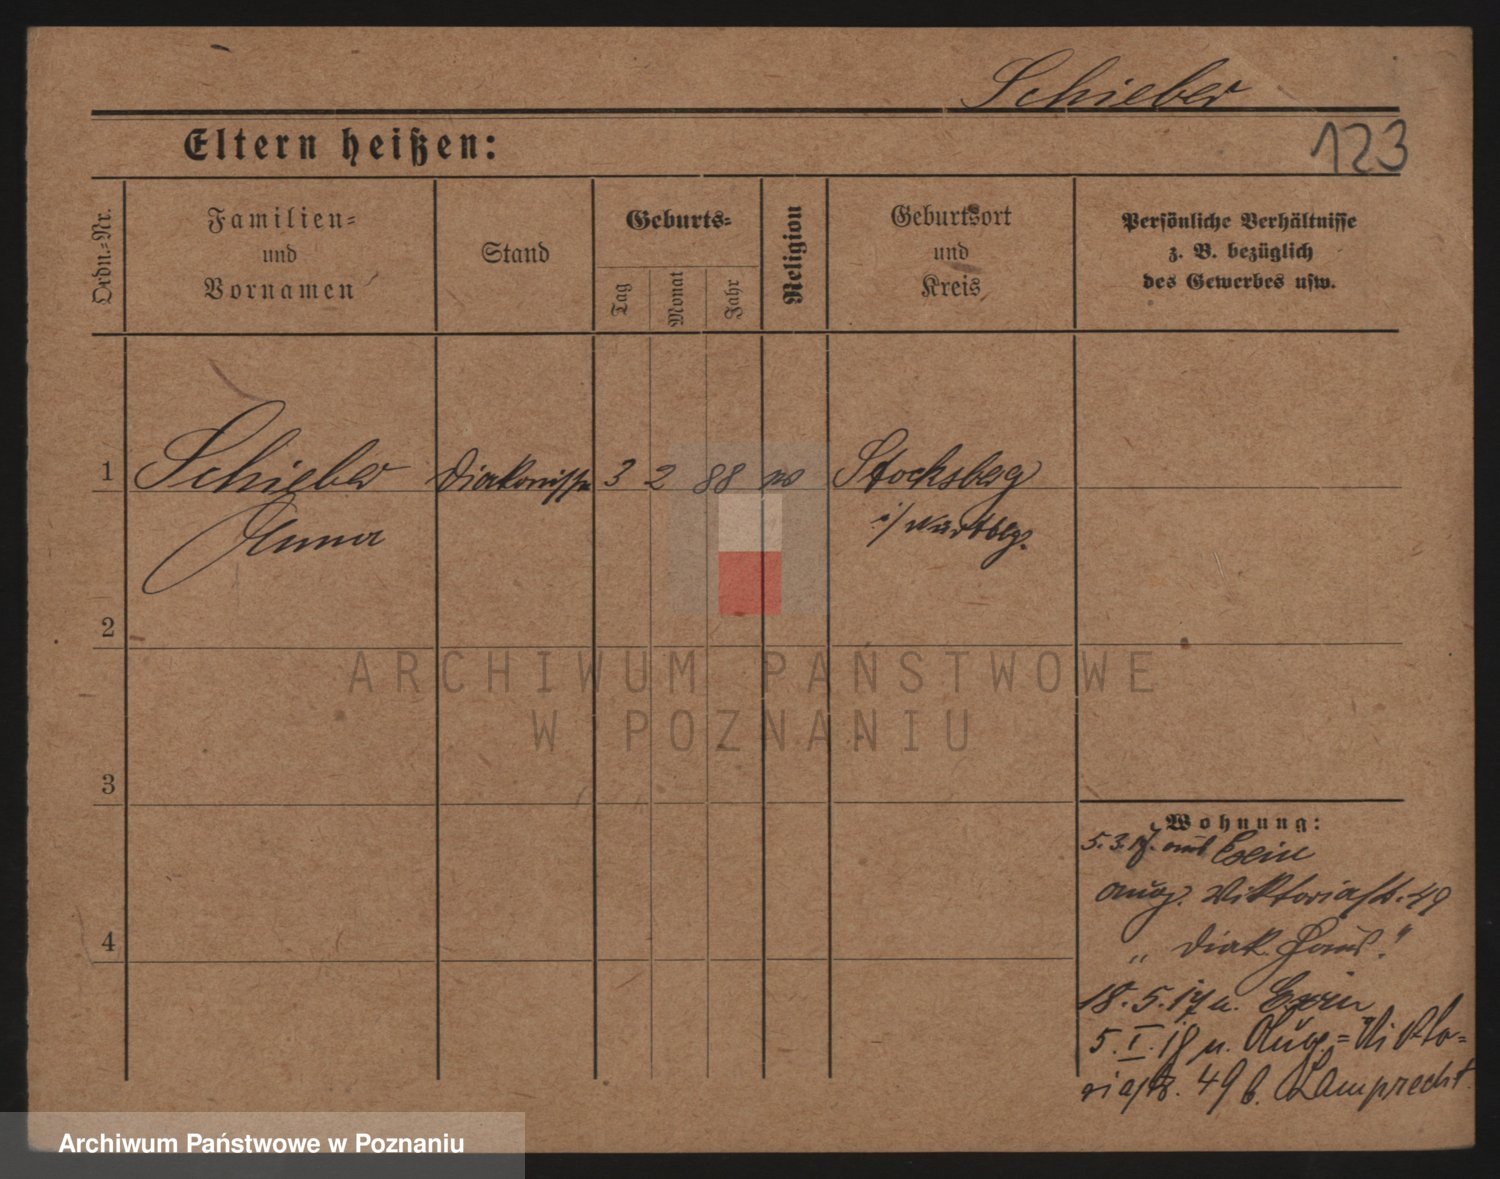 Schieber
Eltern heißen:
123
Ordn.=Nr.
Familien=
und
Vornamen
Stand
Geburts=
Tag
Monat
Jahr
Religion
Geburtsort
und
Kreis
Persönliche Verhältnisse
z. B. bezüglich
des Gewerbes usw.
1
Schieber
Anna
Diakonisse
3
2
88
Stocksberg
i/ Württbg.
2
3
4
Wohnung:
5. 3. 17. aus Exin
Aug. Viktoriastr. 49
„ Diak. Haus."
18. 5. 17 n. Exin
5. I. 18 n. Aug.=Vikto=
riastr. 49 b. Lamprecht.
ARCHIWUM PAŃSTWOWE
W POZNANIU
Archiwum Państwowe w Poznaniu